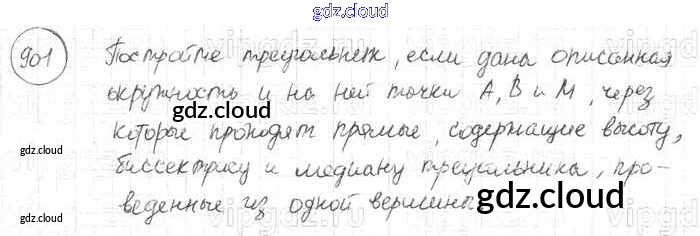 gdz.cloud
901 Постройте треугольник, если дана описанная
окружность и на ней точки A, B и M, через
gdz.cloud
gdz.cloud
которые проходят прямые, содержащие высоту,
gdz.cloud
gdz.cloud
биссектрису и медиану треугольника, про-
gdz.cloud
веденные из одной вершины
gdz.cloud